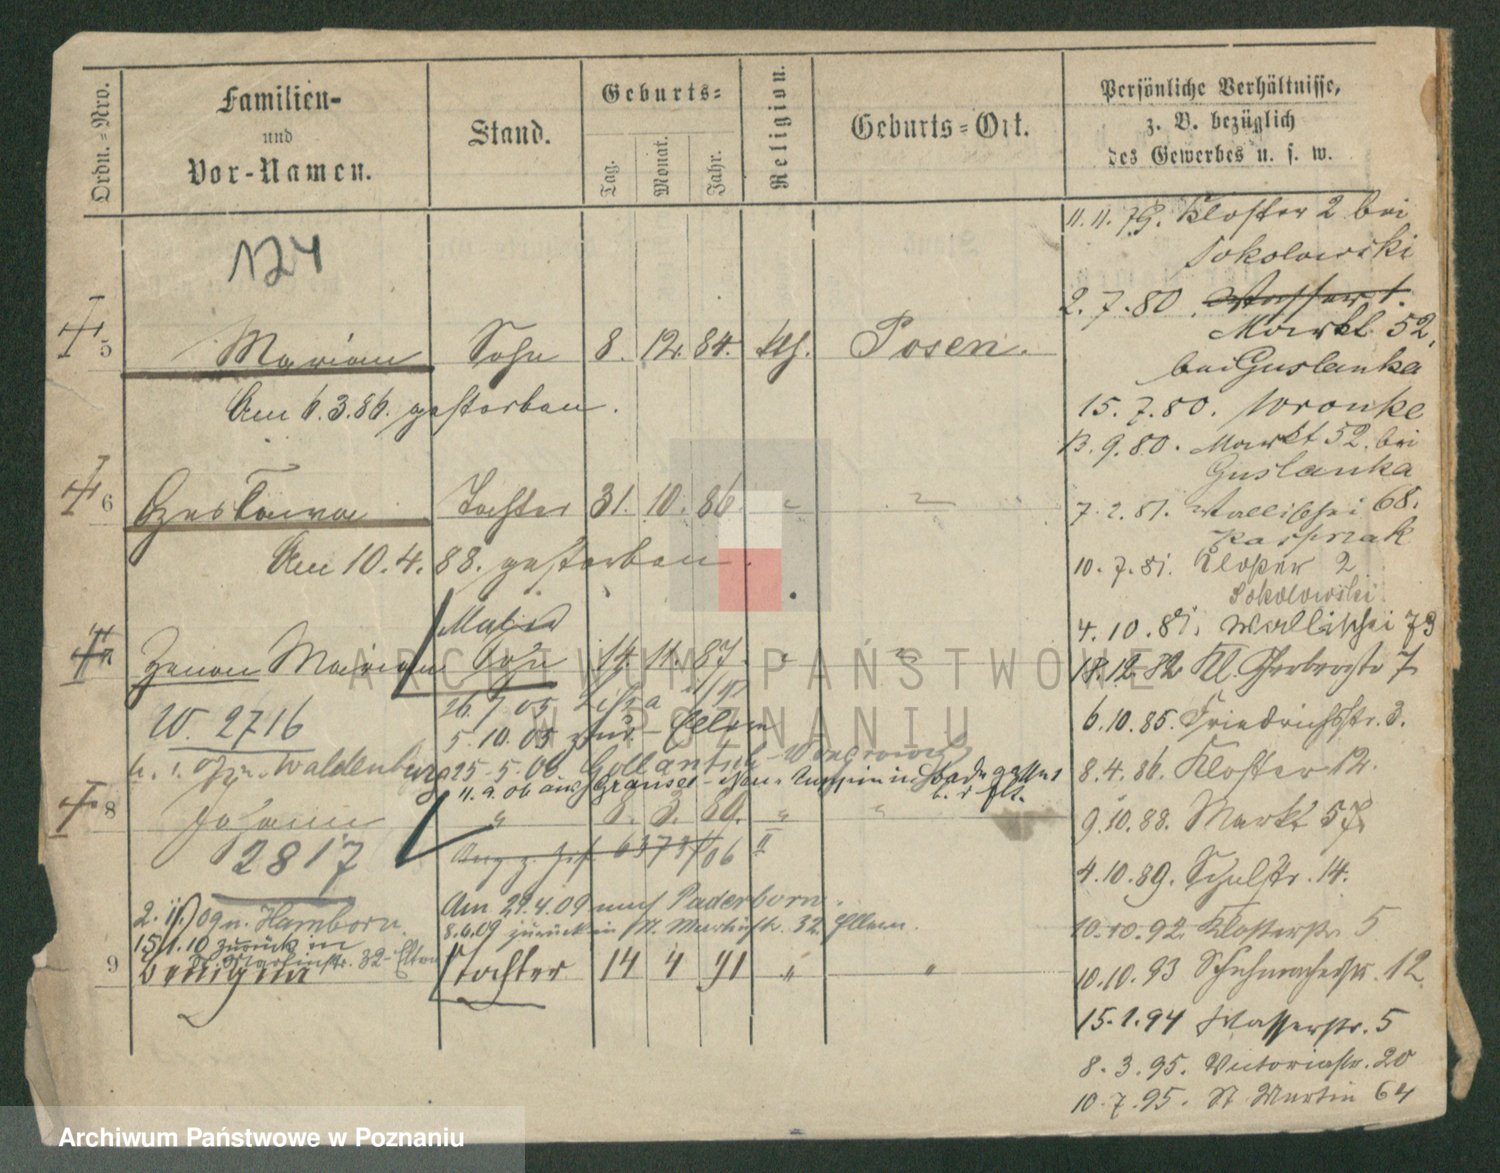 Ordn.=Nro.
Familien-
und
Vor-Namen.
Stand.
Geburts=
Tag.
Monat.
Jahr.
Religion.
Geburts=Ort.
Persönliche Verhältnisse,
z. B. bezüglich
des Gewerbes u. s. w.
124
5 Marian Sohn 8. 12. 84. kth. Posen.
Am 6.3.86. gestorben.
6 Czeslawa Tochter 31. 10. 86. "
Am 10.4.88. gestorben.
Maler
7 Zenon Marian Sohn 14. 11. 87. "
W. 2716
26.7.05 Lissa
5.10.05 zur. Eltern
Waldenburg
25.5.06 Gollantsch-Wongrowitz
11.9.06 aus Gransee
8 Johann " 8. 3. 89. " "
2817
6373/06
Am 29.4.09 nach Paderborn.
8.6.09 zurück in St. Martinstr. 32 Eltern.
2. 09 n. Hamborn.
15.1.10 zurück in
St. Martinstr. 32 - Eltern
9 Benigna Tochter 14 4 91 " "
11.11.79. Kloster 2 bei
Sokolowski
2.7.80. Wasserst.
Markt 52,
bei Guslanka
15.7.80. Wronke
13.9.80. Markt 52. bei
Guslanka
7.2.81. Wallischei 68.
Kasprzak
10.7.81. Kloster 2
Sokolowski
4.10.81. Wallischei 73
18.12.82 Kl. Gerberstr 7
6.10.85. Friedrichsstr. 3.
8.4.86. Kloster 12.
9.10.88. Markt 57
4.10.89. Schulstr. 14.
10.10.92. Klosterstr. 5
10.10.93 Schuhmacherstr. 12
15.1.94 Wasserstr. 5
8.3.95. Victoriastr. 20
10.7.95. St Martin 64
ARCHIWUM PAŃSTWOWE
W POZNANIU
Archiwum Państwowe w Poznaniu